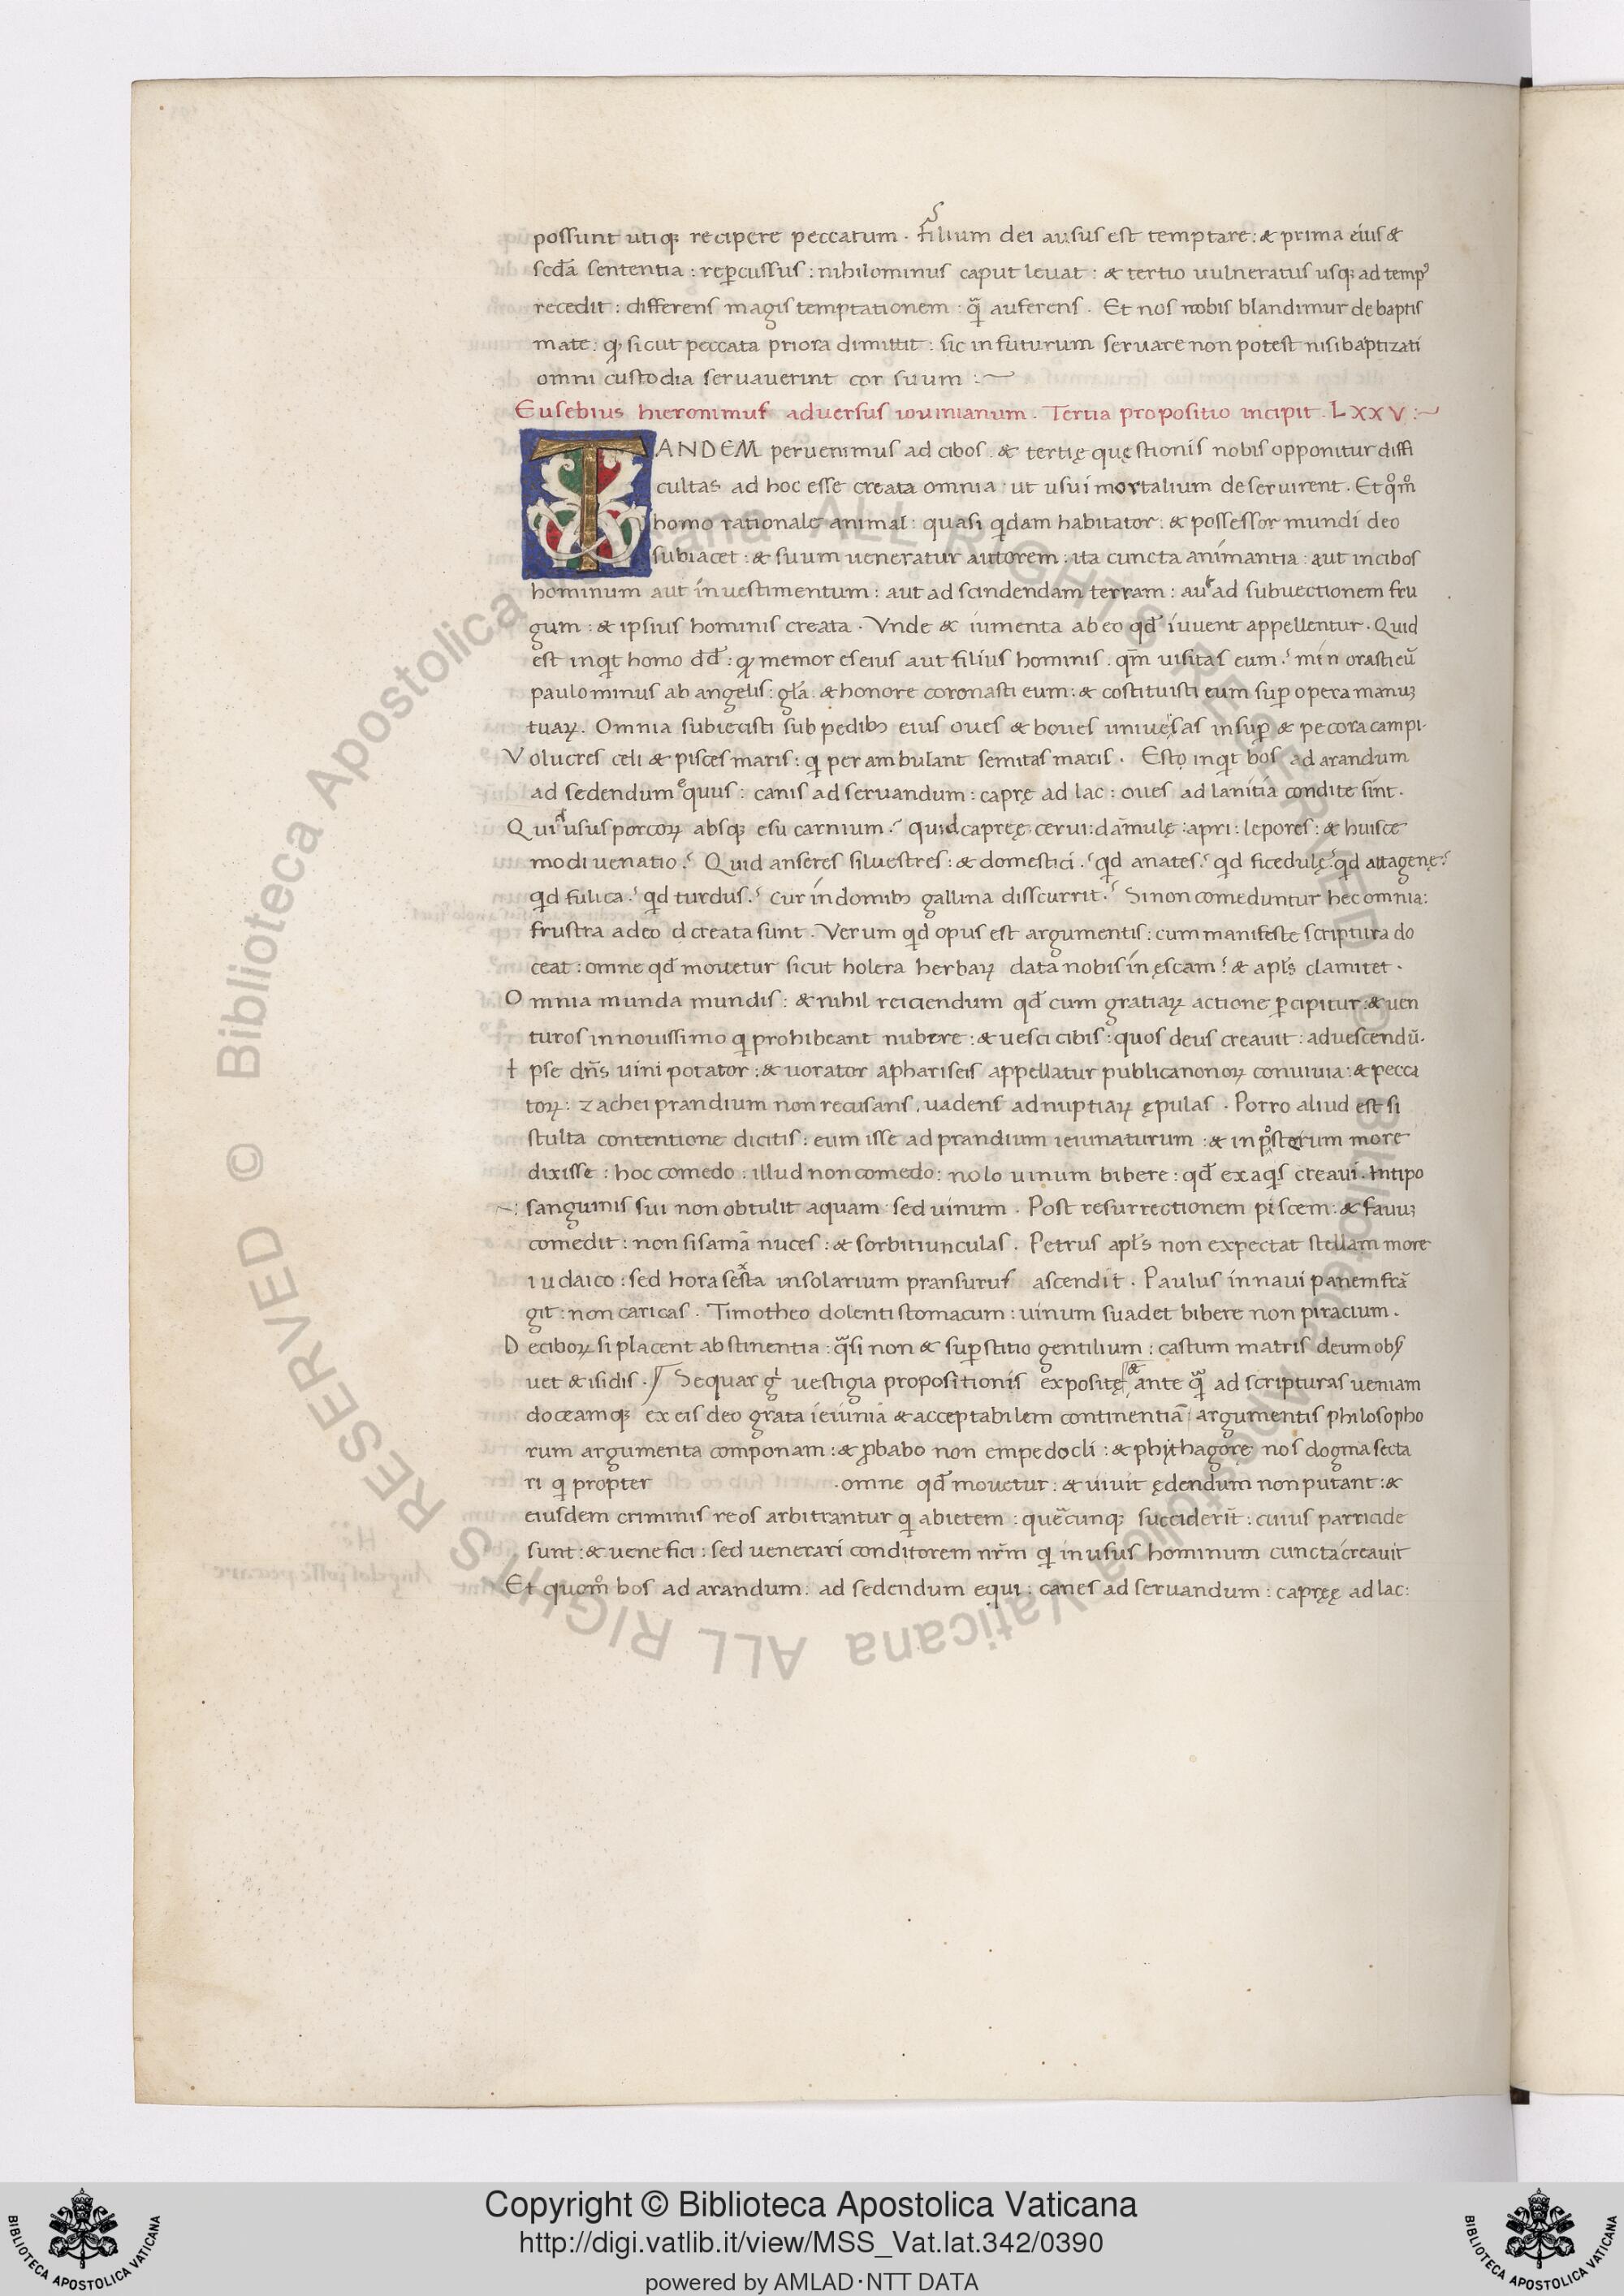 possunt utiqꝫ recipere peccatum . filium dei ausus est temptare : & prima eius &
scdā sententia : reꝑcussus : nihilominus caput levat : & tertio vulneratus usqꝫ ad temp⁹
recedit : differens magis temptationem : qͣ̄ auferens . Et nos nobis blandimur de baptis
mate : qꝫ sicut peccata priora dimittit : sic in futurum servare non potest nisi baptizati
omni custodia servaverint cor suum :~
Eusebius hieronimus adversus iovinianum . Tertia propositio incipit . LXXV :~
TANDEM pervenimus ad cibos . & tertię quęstionis nobis opponitur diffi
cultas ad hoc esse creata omnia : ut usui mortalium deservirent . Et qm̊
homo rationale animal : quasi qdam habitator : & possessor mundi deo
subiacet : & suum veneratur autorem : ita cuncta animantia : aut in cibos
hominum aut in vestimentum : aut ad scindendam terram : aut ad subvectionem fru
gum : & ipsius hominis creata . Vnde & iumenta ab eo qđ iuvent appellentur . Quid
est inqͥt homo dđ : qꝫ memor es eius aut filius hominis . qm̄ visitas eum ? minorasti eū
paulo minus ab angelis : gl̄a . & honore coronasti eum : & costituisti eum suꝑ opera manuꝫ
tuaꝝ . Omnia subiecisti sub pedibꝫ eius oves & boves univeꝛsas insuꝑ & pecora campi .
Volucres celi & pisces maris : qͥ perambulant semitas maris . Esto inqͥt bos ad arandum
ad sedendum equus : canis ad servandum : caprę ad lac : oves ad lanitia condite sint .
Quid usus porcoꝝ absqꝫ esu carnium ? quid capręę : cervi : dāmulę : apri : lepores : & huisce
modi venatio ? Quid anseres silvestres : & domestici ? qͥd anates ? qͥd ficedulę ? qͥd attagenę ?
qͥd fulica ? qͥd turdus ? Cur in domibꝫ gallina disscurrit ? Si non comeduntur hec omnia :
frustra a deo creata sunt . Verum qͥd opus est argumentis : cum manifeste scriptura do
ceat : omne qđ movetur sicut holera herbaꝝ data nobis in ęscam ? & apl̄s clamitet .
Omnia munda mundis : & nihil reiciendum qđ cum gratiaꝝ actione ꝑcipitur : & ven
turos in novissimo qͥ prohibeant nubere : & vesci cibis : quos deus creavit : ad vescendū .
Ipse dn̄s vini potator : & vorator a phariseis appellatur publicanonoꝝ convivia : & pecca
toꝝ : zachei prandium non recusans , vadens ad nuptiaꝝ ępulas . Porro aliud est si
stulta contentione dicitis : eum isse ad prandium ieiunaturum : & inpostorum more
dixisse : hoc comedo : illud non comedo : nolo vinum bibere : qđ ex aqͥs creavi . In tipo
sanguinis sui non obtulit aquam : sed vinum . Post resurrectionem piscem : & favuꝫ
comedit : non sisamā nuces : & sorbitiunculas . Petrus apl̄s non expectat stellam more
iudaico : sed hora sexta in solarium pransurus ascendit . Paulus in navi panem frā
git : non caricas . Timotheo dolenti stomacum : vinum suadet bibere non piracium .
De ciboꝝ si placent abstinentia : qͣsi non & suꝑstitio gentilium : castum matris deum obs
vet & isidis . Sequar gͥ vestigia propositionis exposite & ante qͣ̄ ad scripturas veniam
doceamqꝫ ex eis deo grata ieiunia & acceptabilem continentiā : argumentis philosopho
rum argumenta componam : & ꝓbabo non empedocli : & phythagorę nos dogma secta
ri qͥ propter . omne qđ movetur : & vivit ędendum non putant : &
eiusdem criminis reos arbitrantur qͥ abietem : quęcunqꝫ succiderīt : cuius parricide
sunt : & venefici : sed venerari conditorem nr̄m qͥ in usus hominum cuncta creavit
Et quom̊ bos ad arandum : ad sedendum equi : canes ad servandum : capręę ad lac :
© Biblioteca Apostolica Vaticana ALL RIGHTS RESERVED
© Biblioteca Apostolica Vaticana ALL RIGHTS RESERVED
Copyright © Biblioteca Apostolica Vaticana
http://digi.vatlib.it/view/MSS_Vat.lat.342/0390
powered by AMLAD·NTT DATA
BIBLIOTECA APOSTOLICA VATICANA
BIBLIOTECA APOSTOLICA VATICANA